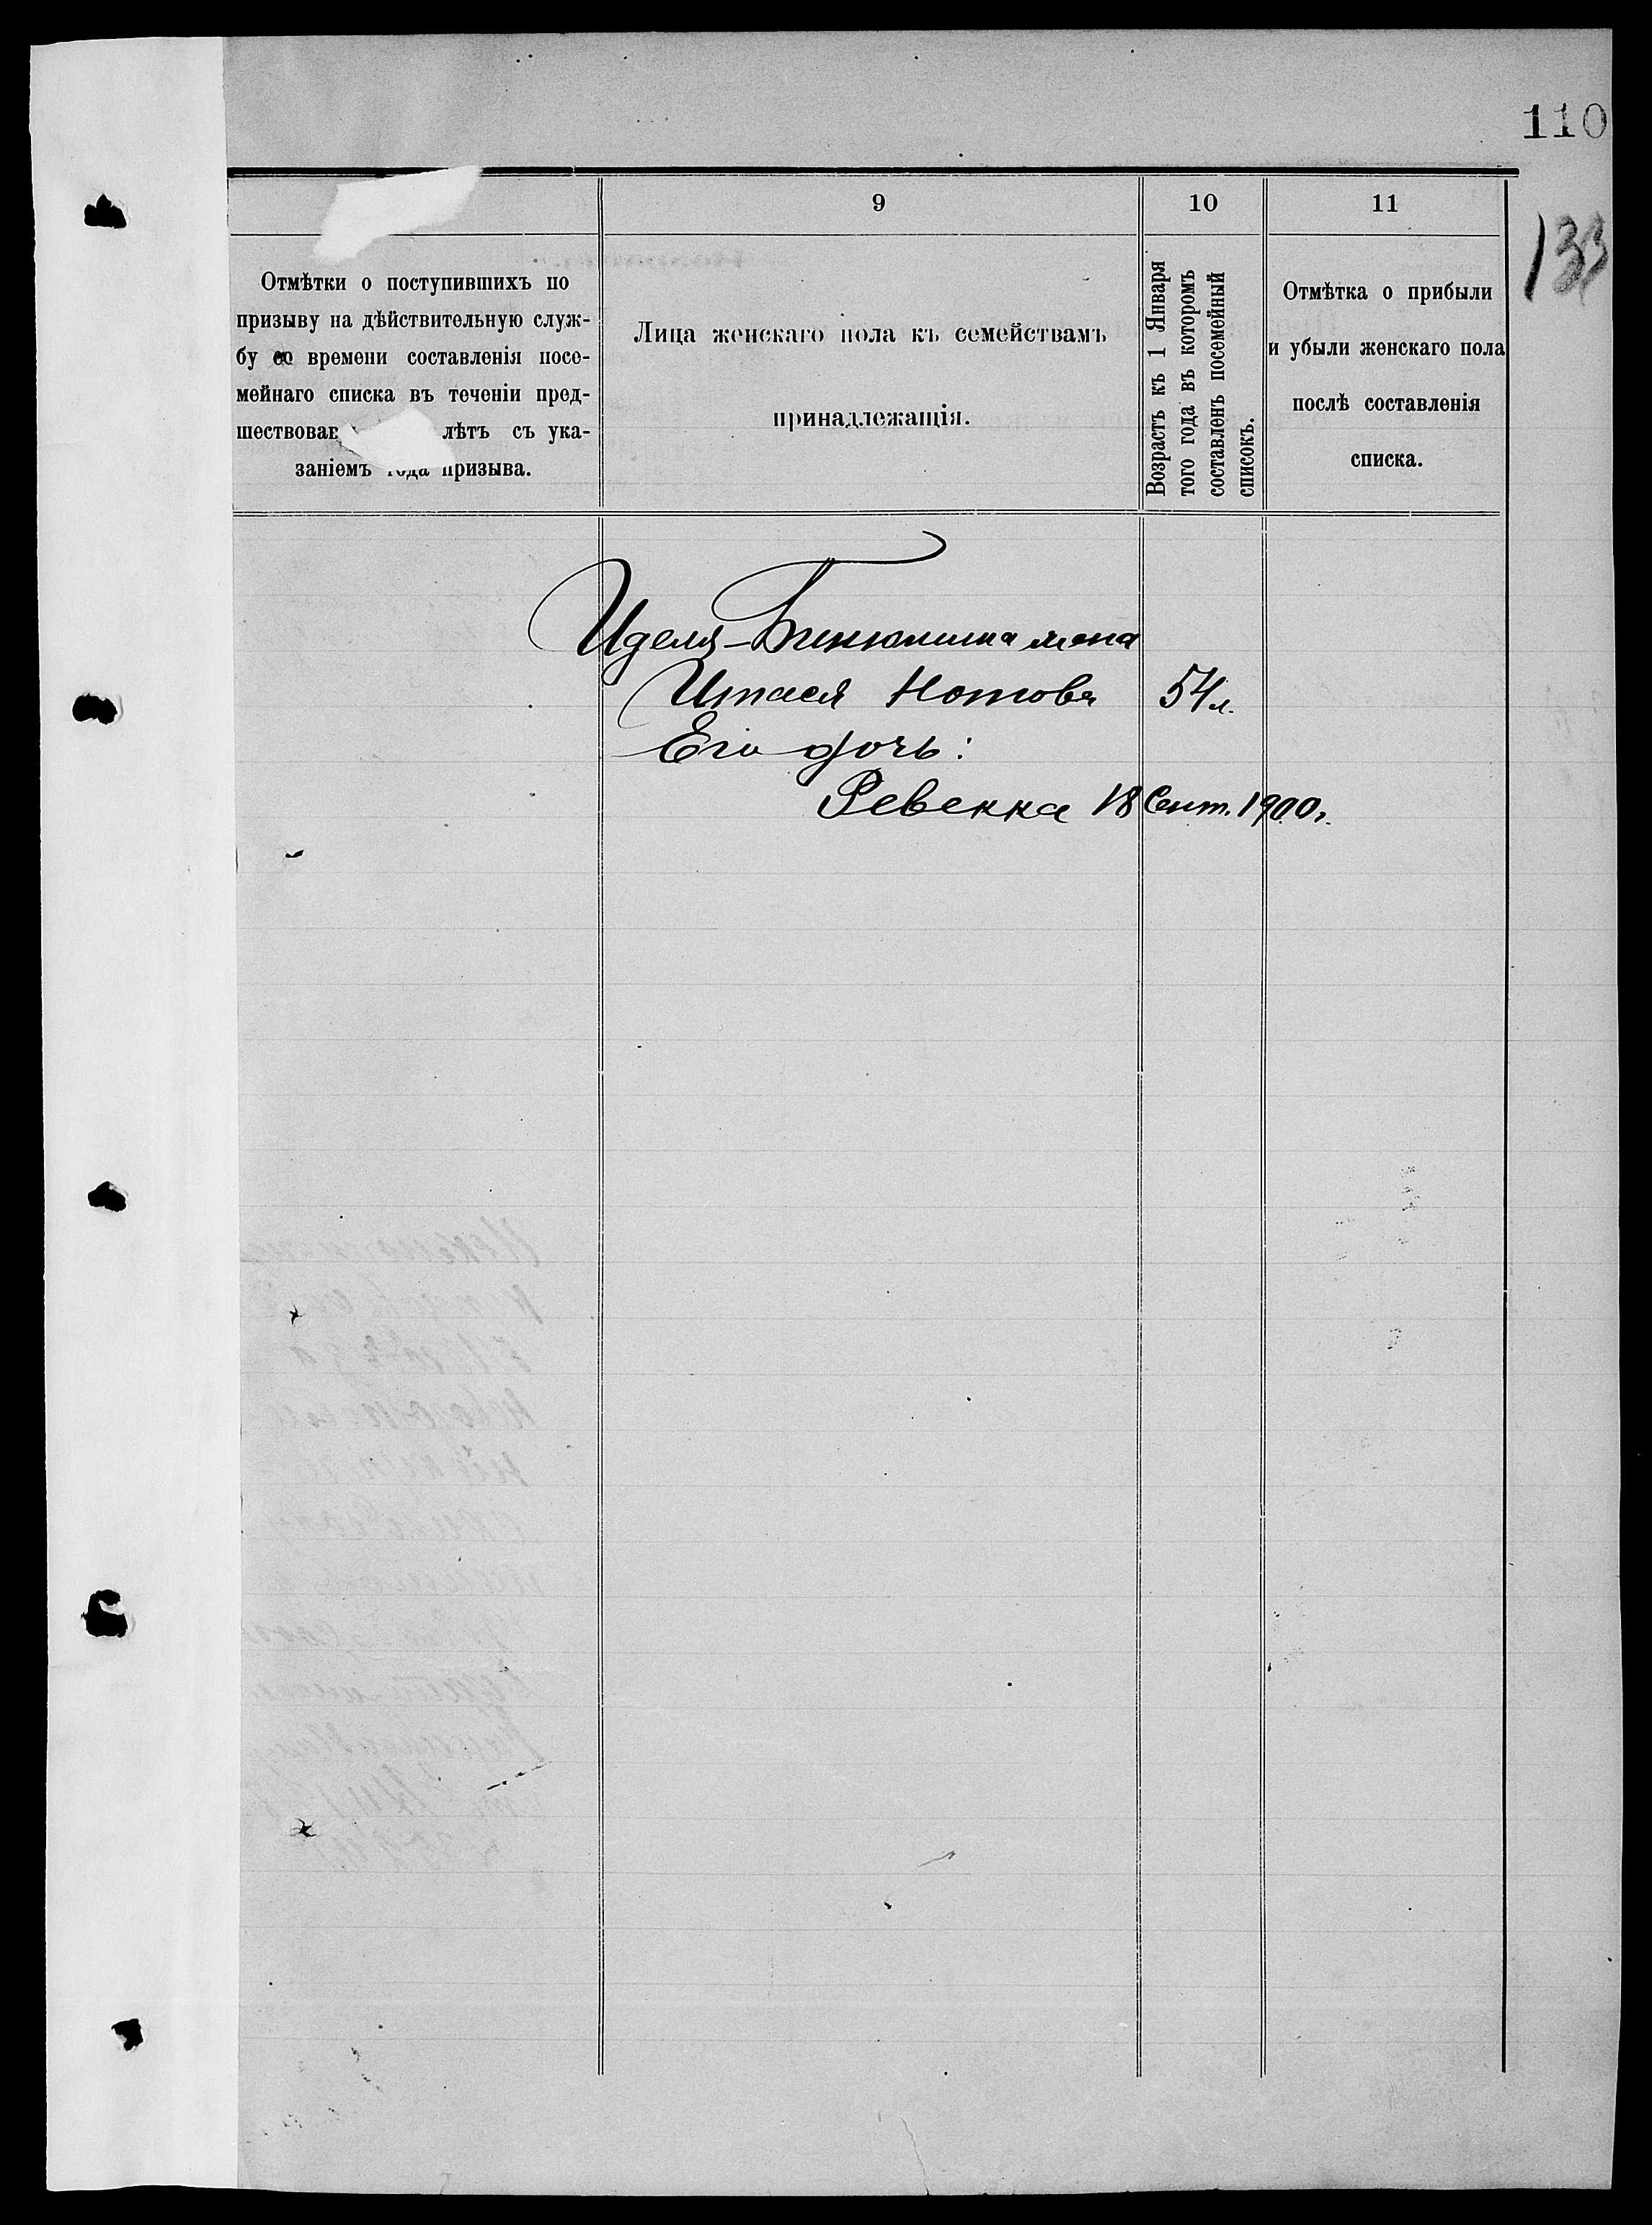 110
133
9
10
11
Отмѣтки о поступившихъ по
призыву на дѣйствительную служ-
бу со времени составленія посе-
мейнаго списка въ теченіи пред-
шествовав лѣтъ съ ука-
заніемъ года призыва.
Лица женскаго пола къ семействамъ
принадлежащія.
Возрастъ къ 1 Января
того года въ которомъ
составленъ посемейный
списокъ.
Отмѣтка о прибыли
и убыли женскаго пола
послѣ составленія
списка.
Иделя-Бенюмина жена
Итася Нотова 54 л.
Его дочь:
Ревекка 18 Сент. 1900 г.